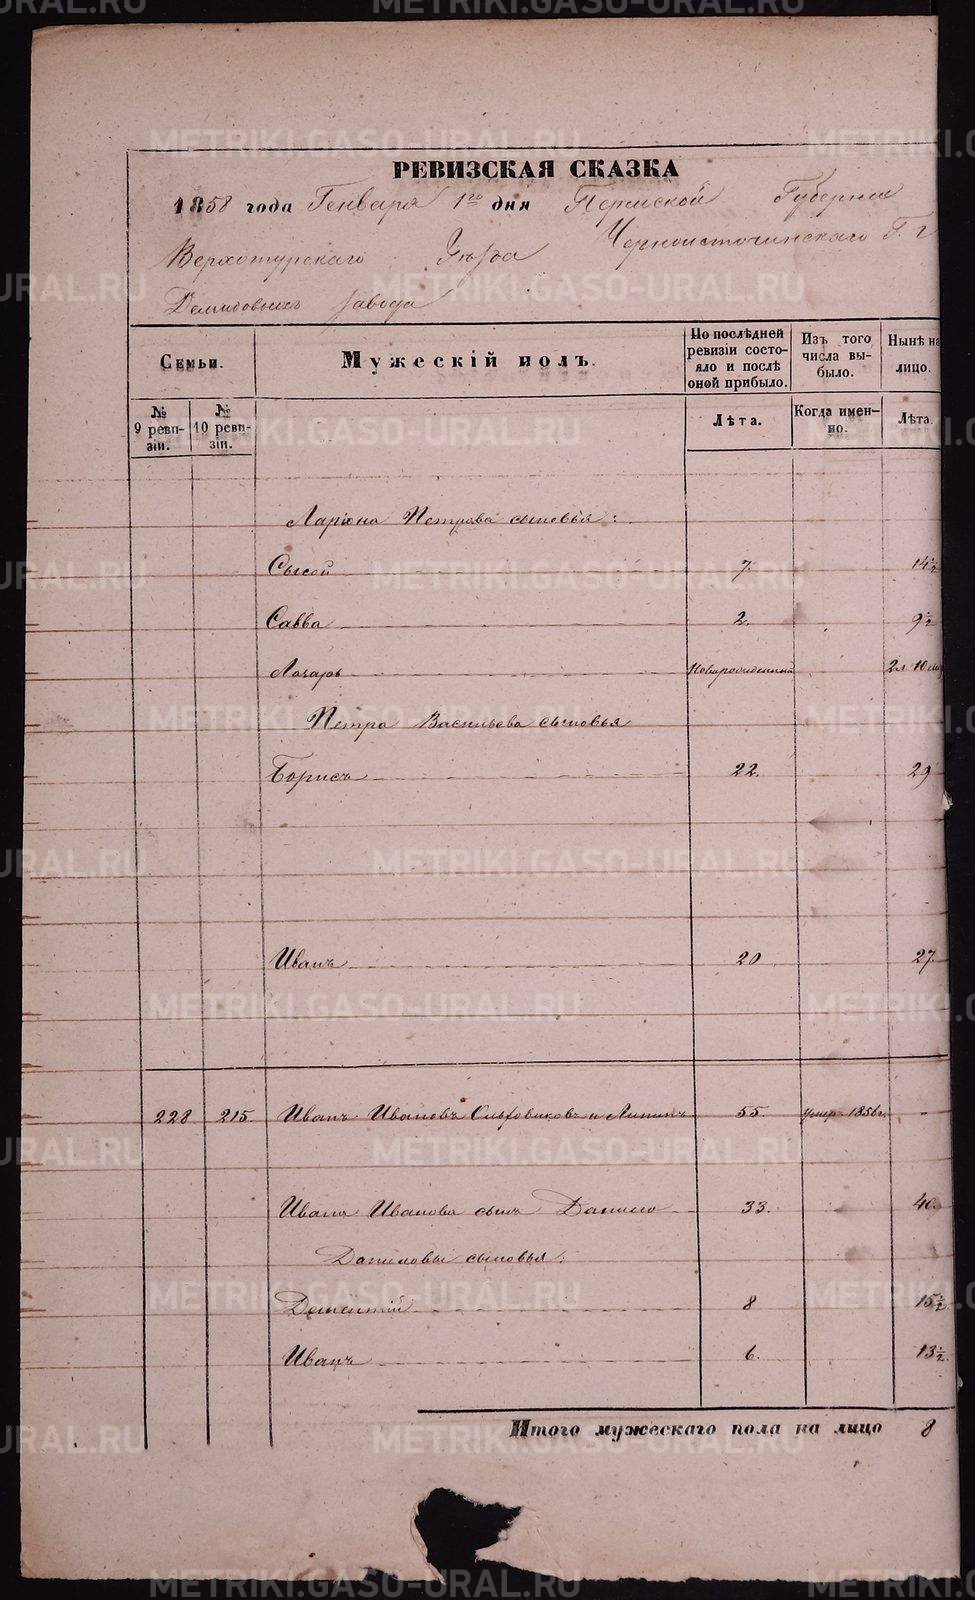 РЕВИЗСКАЯ СКАЗКА
1858 года Генваря 1го дня Пермской Губернии
Верхотурскаго Уѣзда Черноисточинскаго Г. г
Демидовыхъ завода
Семьи.
Мужескій полъ.
По послѣдней ревизіи состояло и послѣ оной прибыло.
Изъ того числа выбыло.
Нынѣ на лицо.
№ 9 ревизіи.
№ 10 ревизіи.
Лѣта.
Когда именно.
Лѣта.
Ларіона Петрова сыновья:
Сысой 7. 14½
Савва 2. 9½
Лазарь Новорожденный 2 л. 10 мѣ
Петра Васильева сыновья
Борисъ 22. 29
Иванъ 20 27.
228 215. Иванъ Ивановъ и 55 умер. 1856 г. -
Ивана Иванова сынъ Данило 33. 40.
Даниловы сыновья:
Дементій 8 15½
Иванъ 6. 13½
Итого мужескаго пола на лицо 8
METRIKI.GASO-URAL.RU